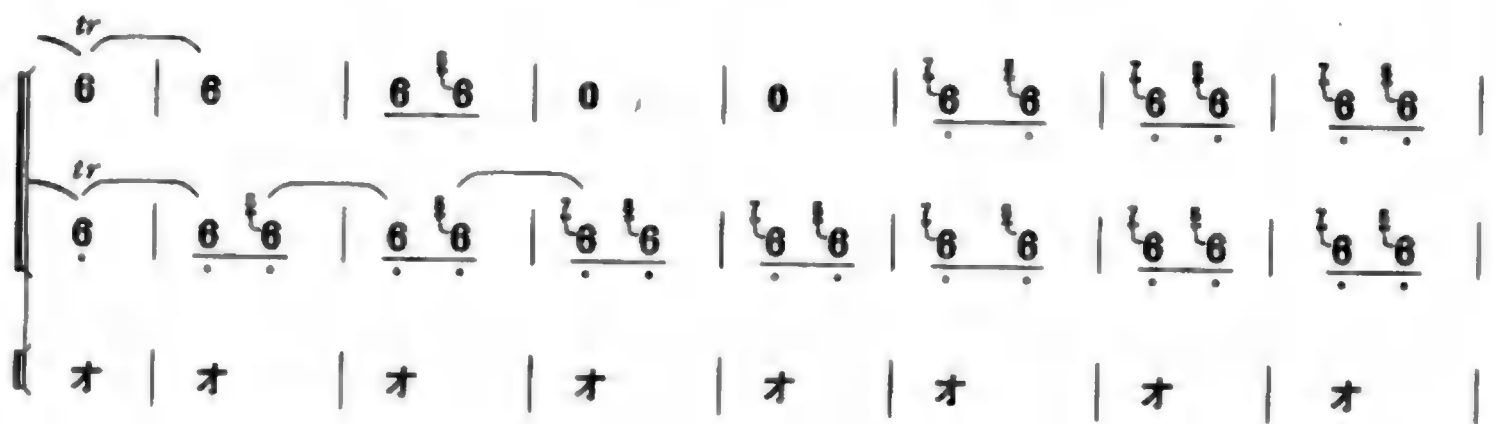 tr
6 | 6 | 6 6 | 0 | 0 | 6 6 | 6 6 | 6 6 |
tr
6 | 6 6 | 6 6 | 6 6 | 6 6 | 6 6 | 6 6 | 6 6 |
才 | 才 | 才 | 才 | 才 | 才 | 才 | 才 |